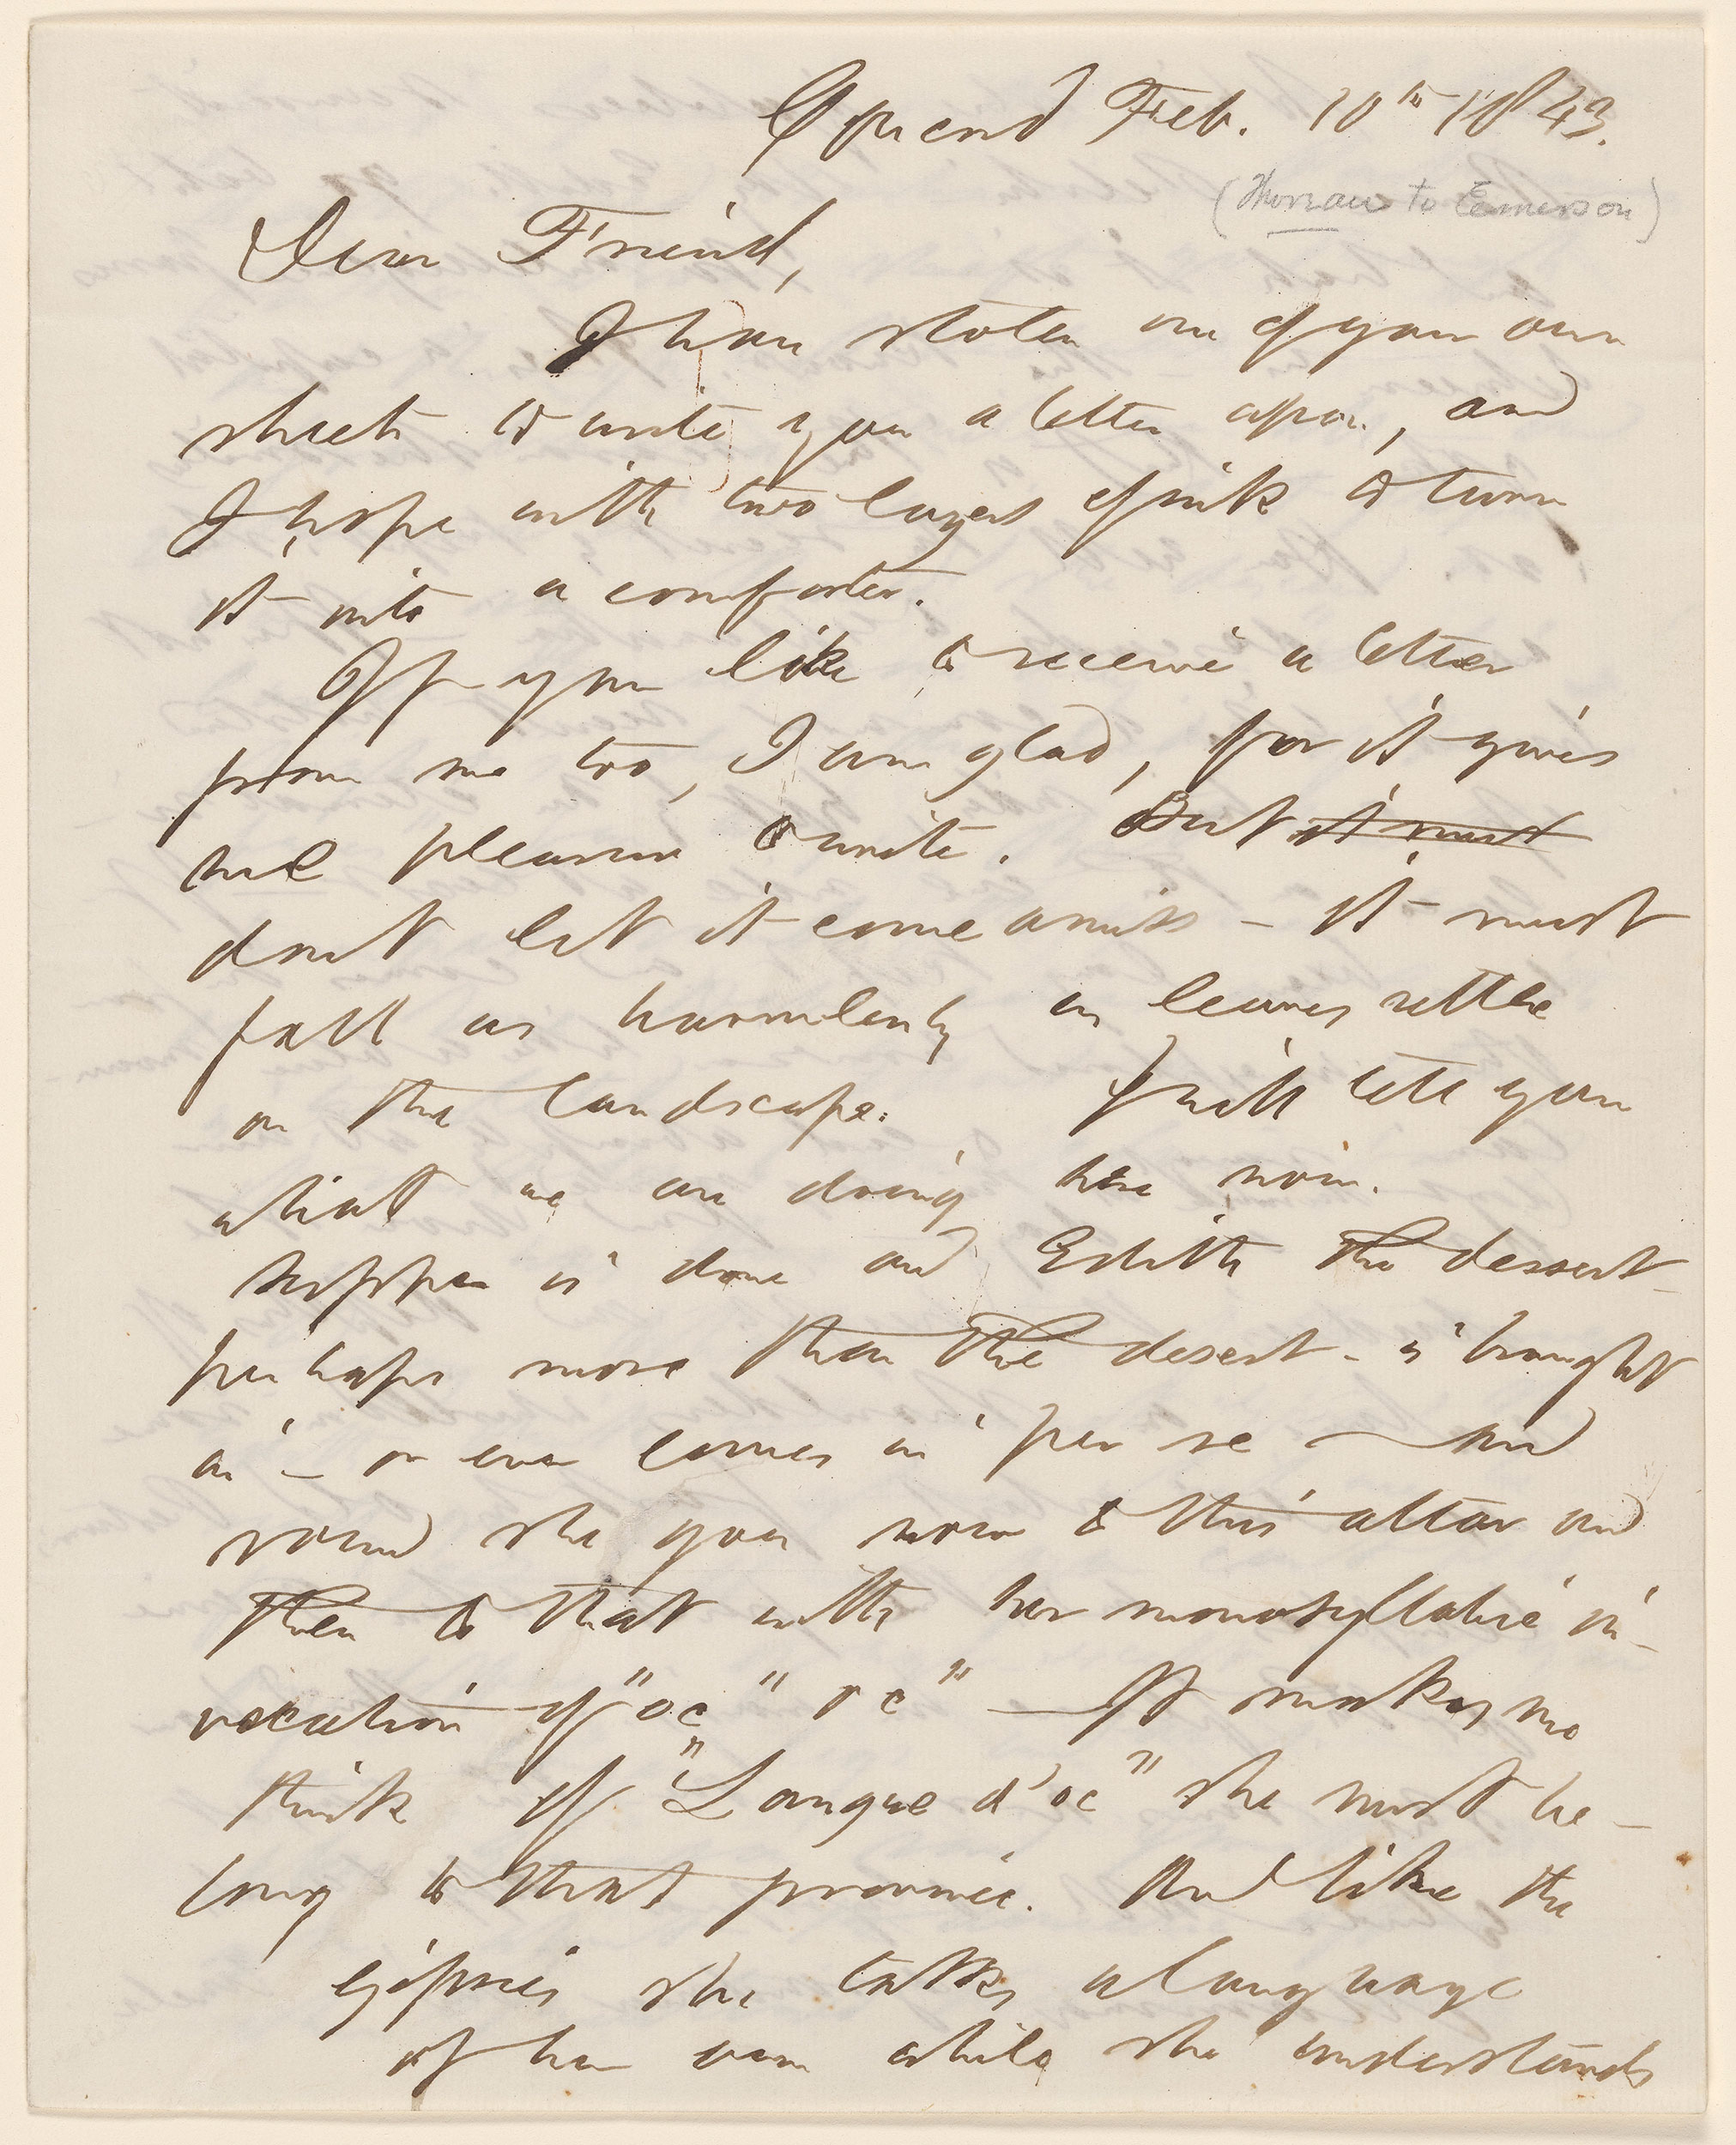 Concord Feb. 10th 1843.
(Thoreau to Emerson)
Dear Friend,
I have stolen one of your own
sheets to write you a letter upon, and
I hope with two layers of ink to turn
it into a comforter.
If you like to receive a letter
from me too, I am glad, for it gives
me pleasure to write. But it must
don't let it come amiss — it must
fall as harmlessly as leaves settle
on the landscape. I will tell you
what we are doing here now.
Supper is done and Edith the dessert —
perhaps more than the desert — is brought
in — or even comes in per se — and
round she goes now to this altar and
then to that with her monosyllabic in-
vocation of "oc" "oc" — It makes me
think of "Langue d'oc" she must be-
long to that province. And like the
gipsies she talks a language
of her own while she understands